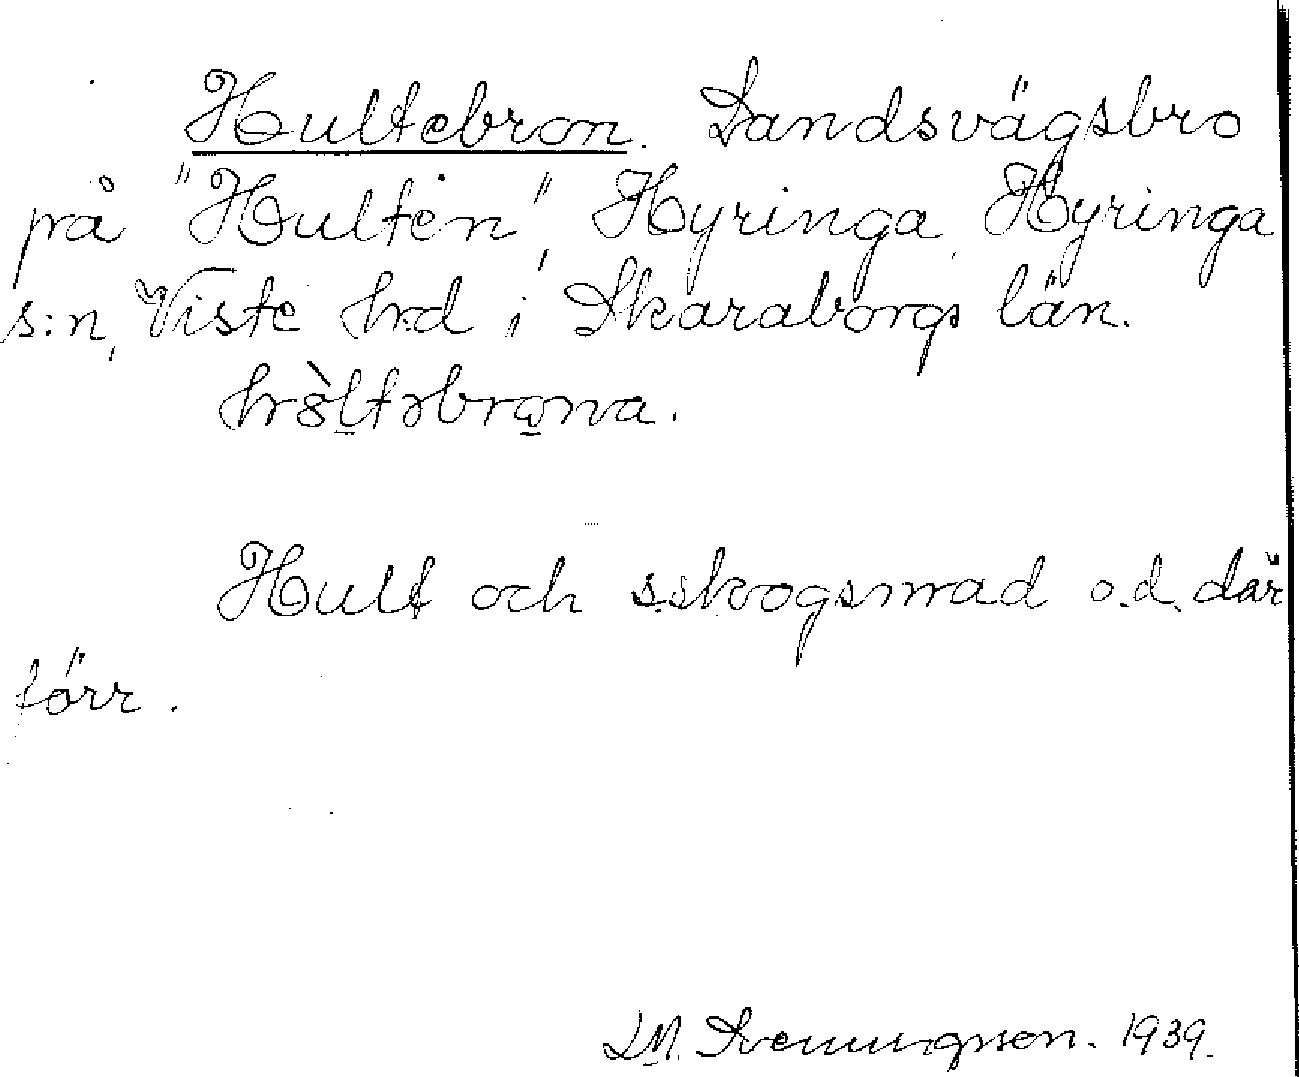 Hultebron. Landsvägsbro
på "Hulten", Hyringa, Hyringa
s:n, Viste hrd i Skaraborgs län.
Hult och s.skogsmad o.d. där
förr.
L.M. Svenungsson. 1939.